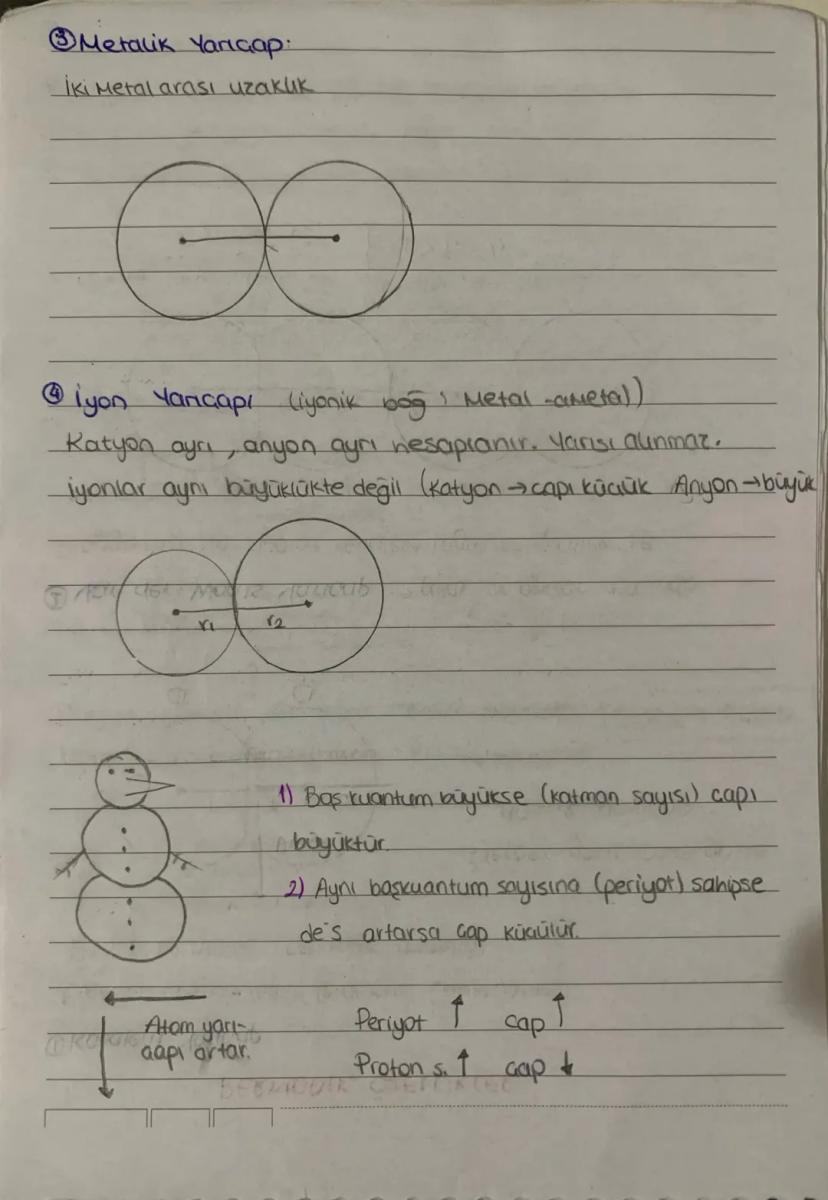 ③ Metalik Yarıçap:
İki Metal arası uzaklık
④ İyon Yarıçapı (iyonik bağ; Metal-aMetal))
Katyon ayrı, anyon ayrı hesaplanır. Yarısı alınmaz.
iyonlar aynı büyüklükte değil (Katyon → çapı küçük Anyon → büyük
r1 r2
1) Baş kuantum büyükse (katman sayısı) çapı
büyüktür.
2) Aynı başkuantum sayısına (periyot) sahipse
de's artarsa çap küçülür.
Atom yarı-
çapı artar.
Periyot ↑ çap ↑
Proton s. ↑ çap ↓